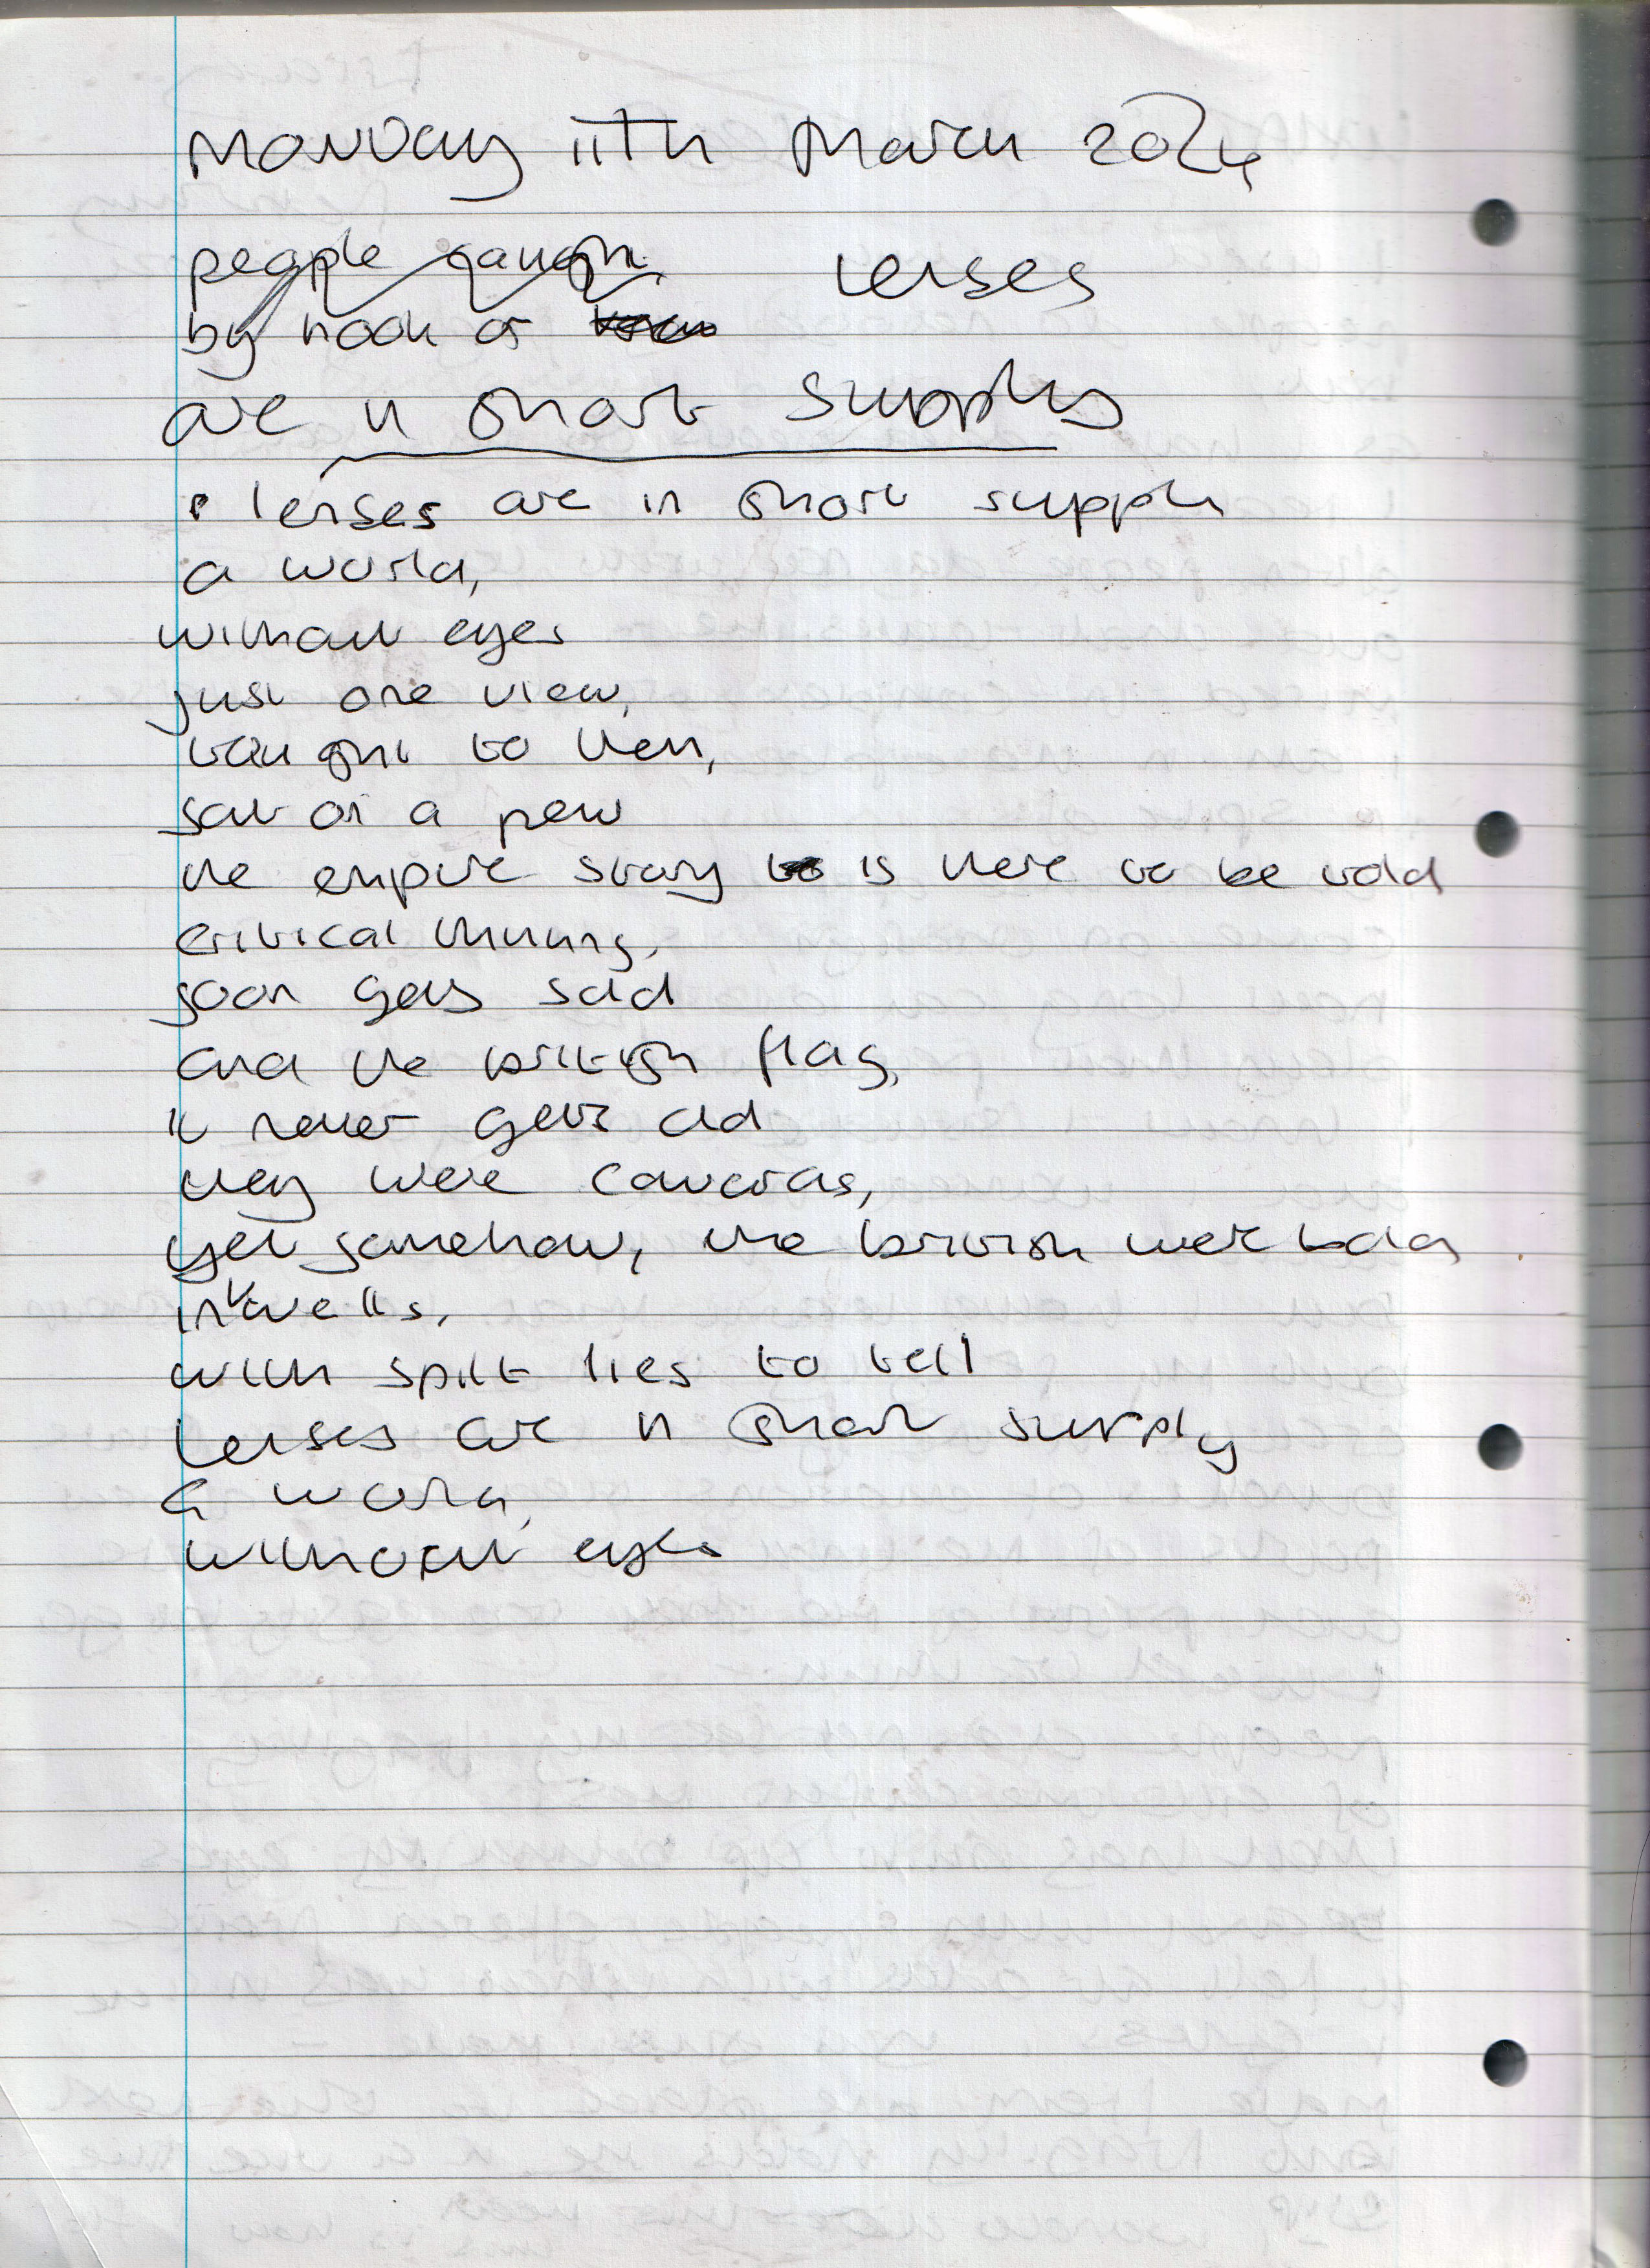 Monday 11th March 2024
people caught lenses
by hook or
are in short supply
lenses are in short supply
a world,
without eyes
just one view,
taught to them,
sat on a pew
the empire story is there to be told
critical thinking,
soon gets sold
and the british flag,
it never gets old
they were
yet somehow, the british were
in wells,
with spilt lies to tell
lenses are in short supply
a world,
without eyes